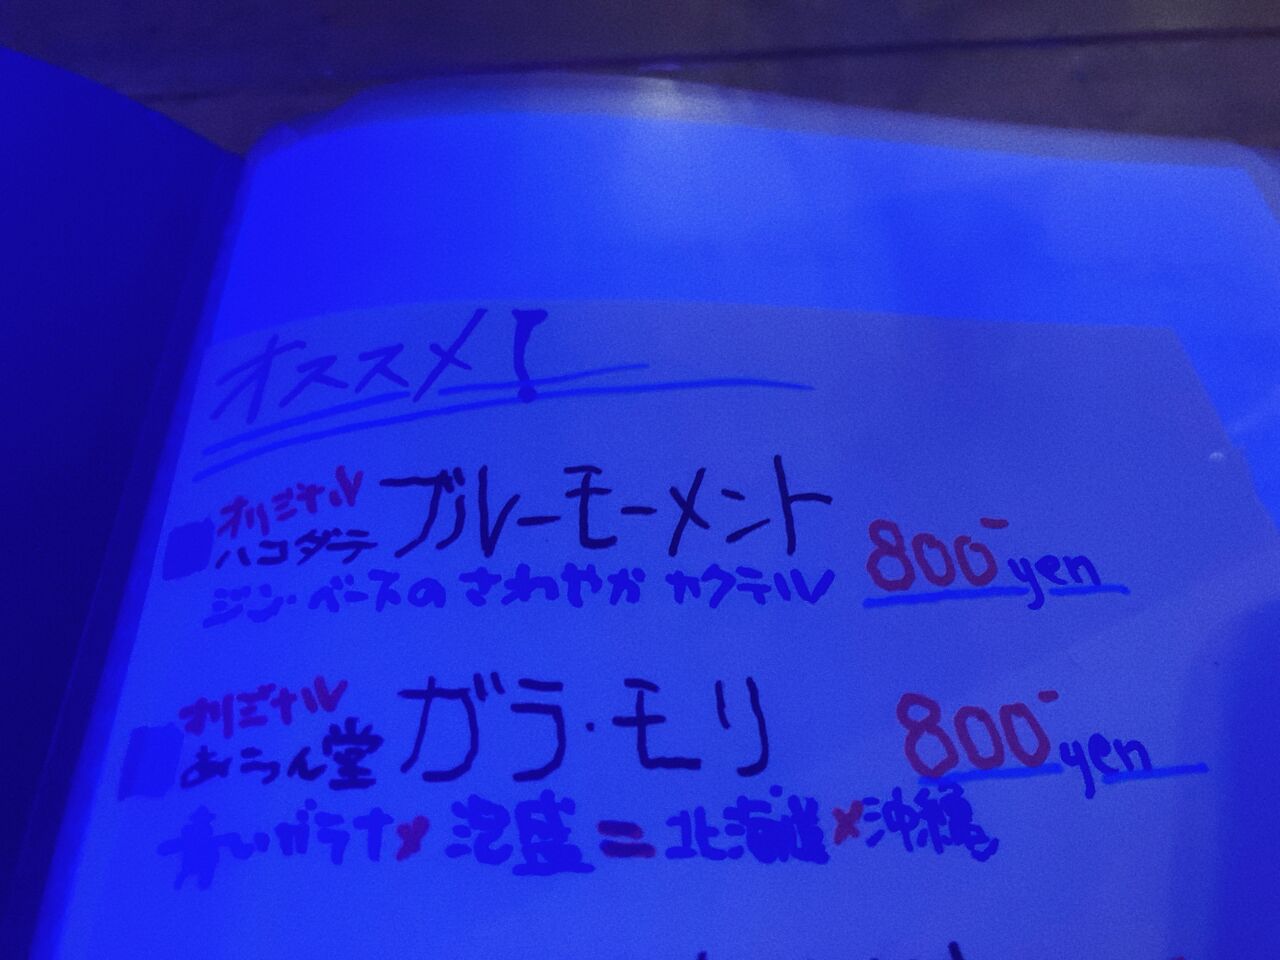 オススメ!
オリジナル
ハコダテ ブルーモーメント 800- yen
ジン・ベースのさわやかカクテル
オリジナル
あうん堂 ガラ・モリ 800- yen
青いガラナ×泡盛=北海道×沖縄